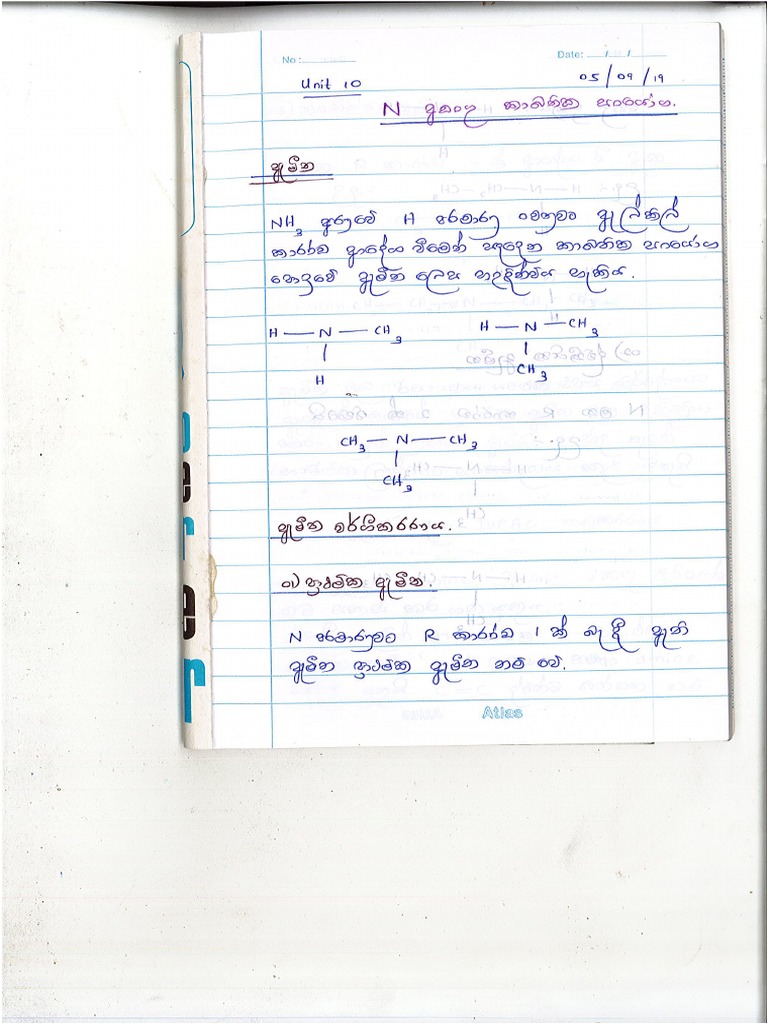 No :
Date: / /
Unit 10
05/09/19
N අඩංගු කාබනික සංයෝග.
ඇමීන
NH3 අණුවේ H පරමාණු වෙනුවට ඇල්කිල්
කාණ්ඩ ආදේශ වීමෙන් සෑදෙන කාබනික සංයෝග
පොදුවේ ඇමීන ලෙස හැඳින්විය හැකිය.
H — N — CH3 H — N — CH3
H CH3
CH3 — N — CH3
CH3
ඇමීන වර්ගීකරණය.
01) ප්‍රාථමික ඇමීන.
N පරමාණුවට R කාණ්ඩ 1 ක් බැඳී ඇති
ඇමීන ප්‍රාථමික ඇමීන නම් වේ.
Atlas